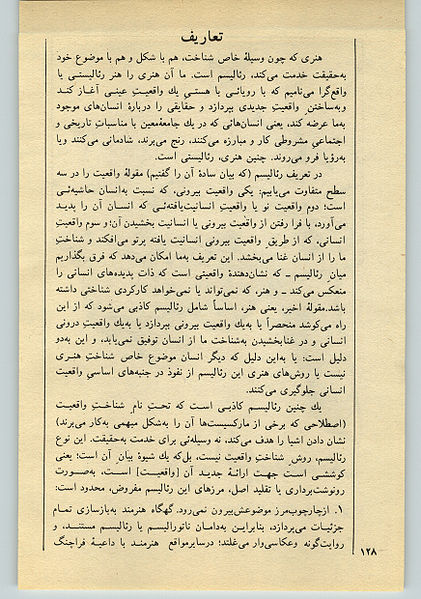 تعاریف
هنری که چون وسیلهٔ خاص شناخت، هم با شکل و هم با موضوع خود
به‌حقیقت خدمت می‌کند، رئالیسم است. ما آن هنری را هنر رئالیستی یا
واقع‌گرا می‌نامیم که با رویائی با هستی یك واقعیتِ عینی آغاز کند
وبه‌ساختن واقعیتِ جدیدی بپردازد و حقایقی را دربارهٔ انسان‌های موجود
به‌ما عرضه کند، یعنی انسان‌هائی که در یك جامعهٔ‌معین با مناسبات تاریخی و
اجتماعی مشروطی کار و مبارزه می‌کنند، رنج می‌برند، شادمانی می‌کنند ویا
به‌رؤیا فرو می‌روند. چنین هنری، رئالیستی است.
در تعریف رئالیسم (که بیان سادهٔ آن را گفتیم) مقولهٔ واقعیت را در سه
سطح متفاوت می‌یابیم: یکی واقعیتِ بیرونی، که نسبت به‌انسان حاشیه‌ئی
است؛ دوم واقعیتِ نو یا واقعیتِ انسانیت‌یافته‌ئی که انسان آن را پدید
می‌آورد، با فرا رفتن از واقعیتِ بیرونی یا انسانیت بخشیدن آن؛ و سوم واقعیتِ
انسانی، که از طریق ِ واقعیتِ بیرونی انسانیت یافته پرتو می‌افکند و شناختِ
ما را از انسان غنا می‌بخشد. این تعریف به‌ما امکان می‌دهد که فرق بگذاریم
میان ِ رئالیسم ـ که نشان‌دهندهٔ واقعیتی است که ذات پدیده‌های انسانی را
منعکس می‌کند ـ و هنر، که نمی‌تواند یا نمی‌خواهد کارکردی شناختی داشته
باشد.مقولهٔ اخیر، یعنی هنر، اساساً شامل رئالیسم کاذبی می‌شود که از این
راه می‌کوشد منحصراً یا به‌یك واقعیتِ بیرونی بپردازد یا به‌یك واقعیتِ درونی
انسانی و در غنابخشیدن به‌شناخت ما از انسان توفیق نمی‌یابد، و این به‌دو
دلیل است: یا به‌این دلیل که دیگر انسان موضوع خاص شناختِ هنری
نیست یا روش‌های هنری این رئالیسم از نفوذ در جنبه‌های اساسیِ واقعیت
انسانی جلوگیری می‌کنند.
یك چنین رئالیسم کاذبی است که تحتِ نام ِ شناختِ واقعیت
(اصطلاحی که برخی از مارکسیست‌ها آن را به‌شکل مبهمی به‌کار می‌برند)
نشان دادن اشیا را هدف می‌کند، نه وسیله‌ئی برای خدمت به‌حقیقت. این نوع
رئالیسم، روش ِ شناختِ واقعیت نیست، بل‌که یك شیوهٔ بیان ِ آن است؛ یعنی
کوششی است جهت ارائهٔ جدید آن [واقعیت] است، به‌صورت
رونوشت‌برداری یا تقلید اصل، مرزهای این رئالیسم مفروض، محدود است:
۱. ازچارچوب‌مرز موضوعش‌بیرون نمی‌رود. گهگاه هنرمند به‌بازسازی تمام
جزئیات می‌پردازد، بنابراین به‌دامان ناتورالیسم یا رئالیسم مستند، و
روایت‌گونه وعکاسی‌وار می‌غلتد؛ درسایرمواقع هنرمند با داعیهٔ فراچنگ
۱۲۸